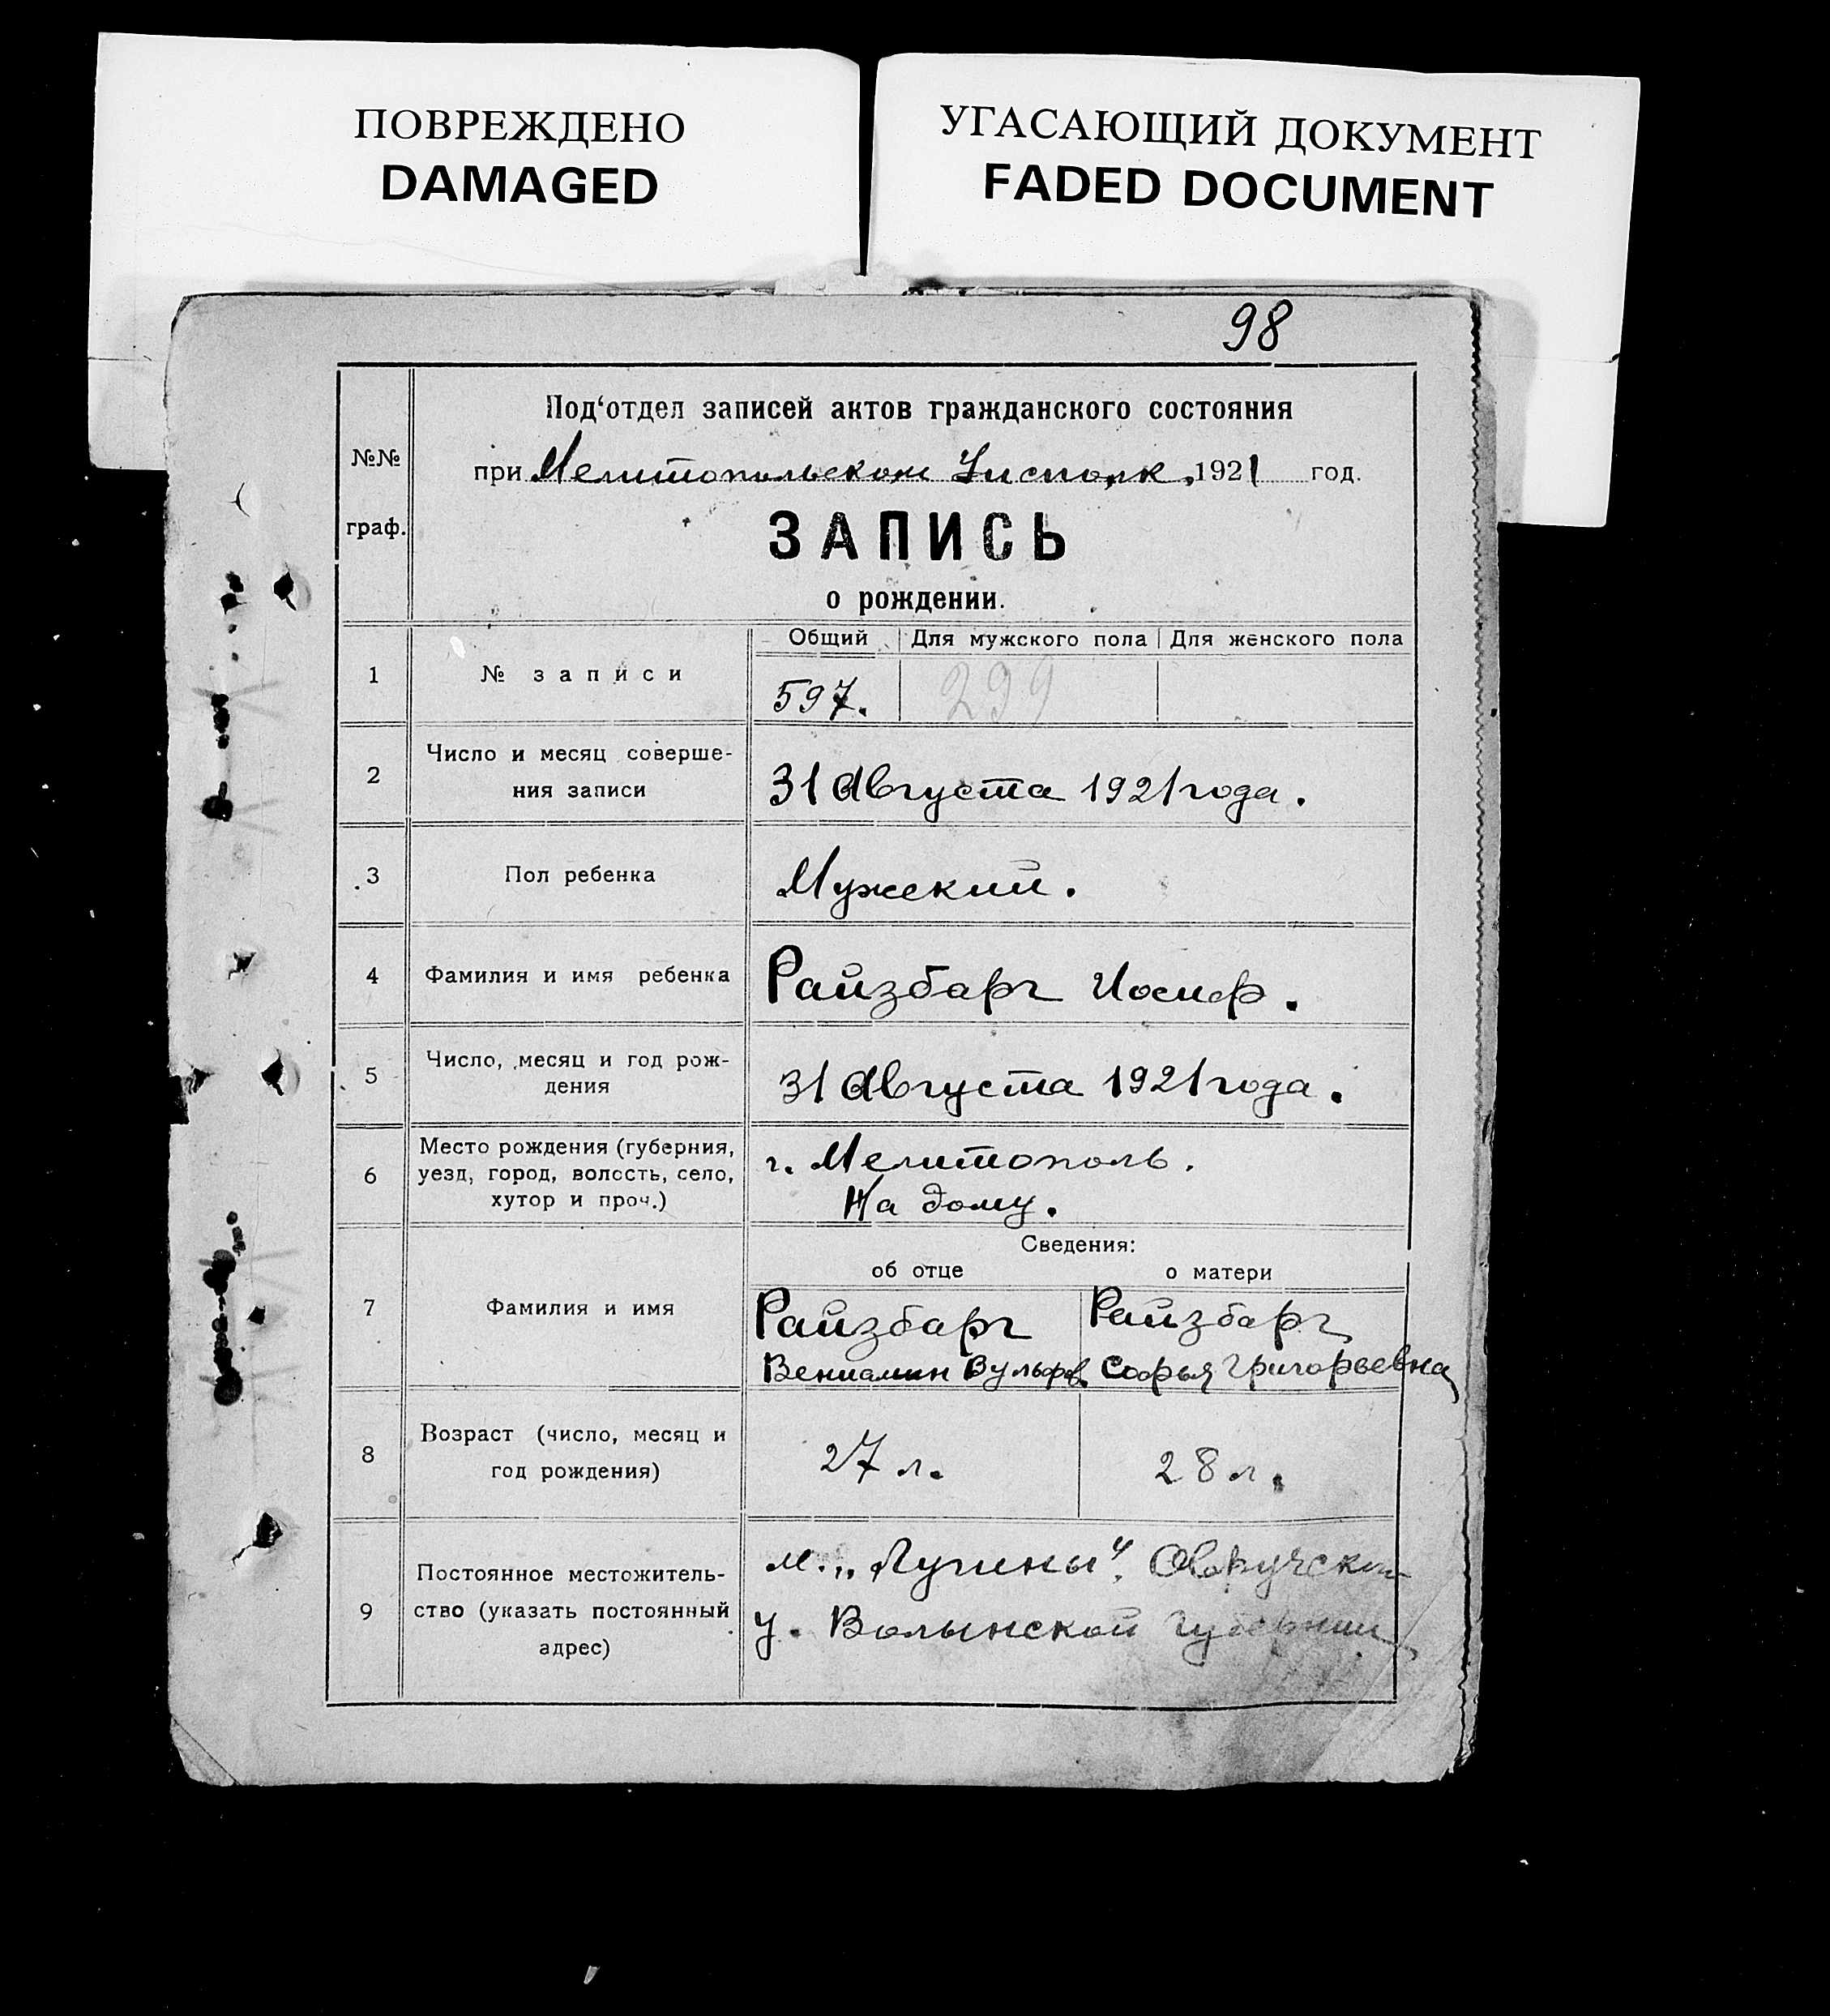 ПОВРЕЖДЕНО
DAMAGED
УГАСАЮЩИЙ ДОКУМЕНТ
FADED DOCUMENT
98
№№
граф.
Под‘отдел записей актов гражданского состояния
при Мелитопольском Уисполк. 1921 год.
ЗАПИСЬ
о рождении.
Общий Для мужского пола Для женского пола
1 № записи 597. 299
2 Число и месяц соверше-
ния записи
31 Августа 1921 года.
3 Пол ребенка Мужский.
4 Фамилия и имя ребенка Райзбарг Иосиф.
5 Число, месяц и год рож-
дения
31 Августа 1921 года.
6 Место рождения (губерния,
уезд, город, волость, село,
хутор и проч.)
г. Мелитополь.
На дому.
Сведения:
об отце о матери
7 Фамилия и имя
Райзбарг
Вениамин Вульфов.
Райзбарг
Софья Григорьевна
8 Возраст (число, месяц и
год рождения)
27 л. 28 л.
9 Постоянное местожитель-
ство (указать постоянный
адрес)
м. „Лугины“, Овручской
у. Волынской губернии